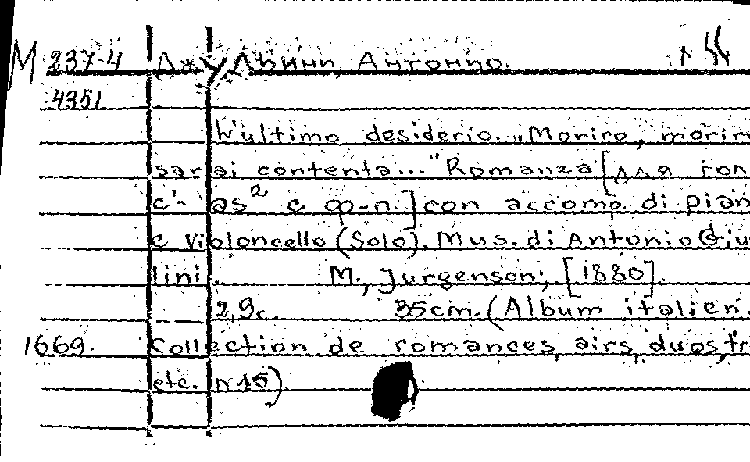 М 237-4 Джульини, Антонио.
4351
L'ultimo desiderio. „Moriro, morir
sarai contenta..." Romanza [для гол
c'-as² с ф-п.] con accomp. di pian
e Violoncello (Solo). Mus. di Antonio Giu
lini. M., Jurgenson, [1880].
2,9с. 35cm. (Album italien.
1669. Collection de romances, airs, duos, tr
etc. N 15)